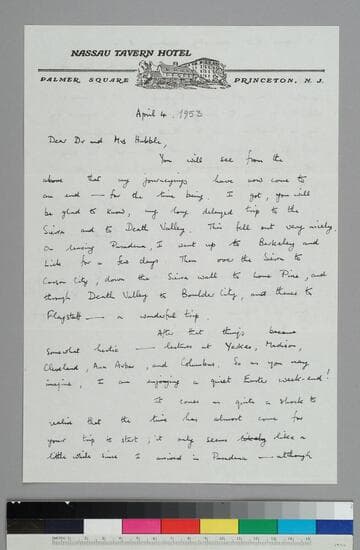 NASSAU TAVERN HOTEL
PALMER SQUARE PRINCETON, N. J.
April 4, 1953
Dear Dr and Mrs Hubble,
You will see from the
above that my journeyings have now come to
an end — for the time being. I got, you will
be glad to know, my long delayed trip to the
Sierra and to Death Valley. This fell out very nicely.
On leaving Pasadena, I went up to Berkeley and
Lick for a few days. Then over the Sierra to
Carson City, down the Sierra wall to Lone Pine, and
through Death Valley to Boulder City, and thence to
Flagstaff — a wonderful trip.
After that things became
somewhat hectic — lectures at Yerkes, Madison,
Cleveland, Ann Arbor, and Columbus. So as you may
imagine, I am enjoying a quiet Easter week-end!
It comes as quite a shock to
realise that the time has almost come for
your trip to start; it only seems like a
little while since I arrived in Pasadena — although